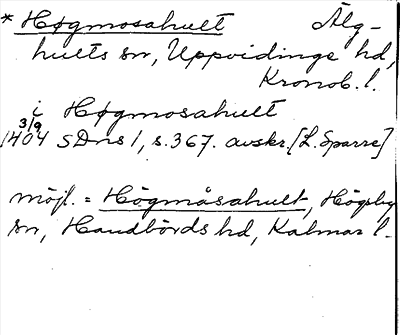 * Høgmosahult Älg-
hults sn, Uppvidinge hd,
Kronob. l.
i Høgmosahult
1404 3/9 SDns 1, s. 367. avskr. [L. Sparre]
möjl. = Högmåsahult, Högsby
sn, Handbörds hd, Kalmar l.